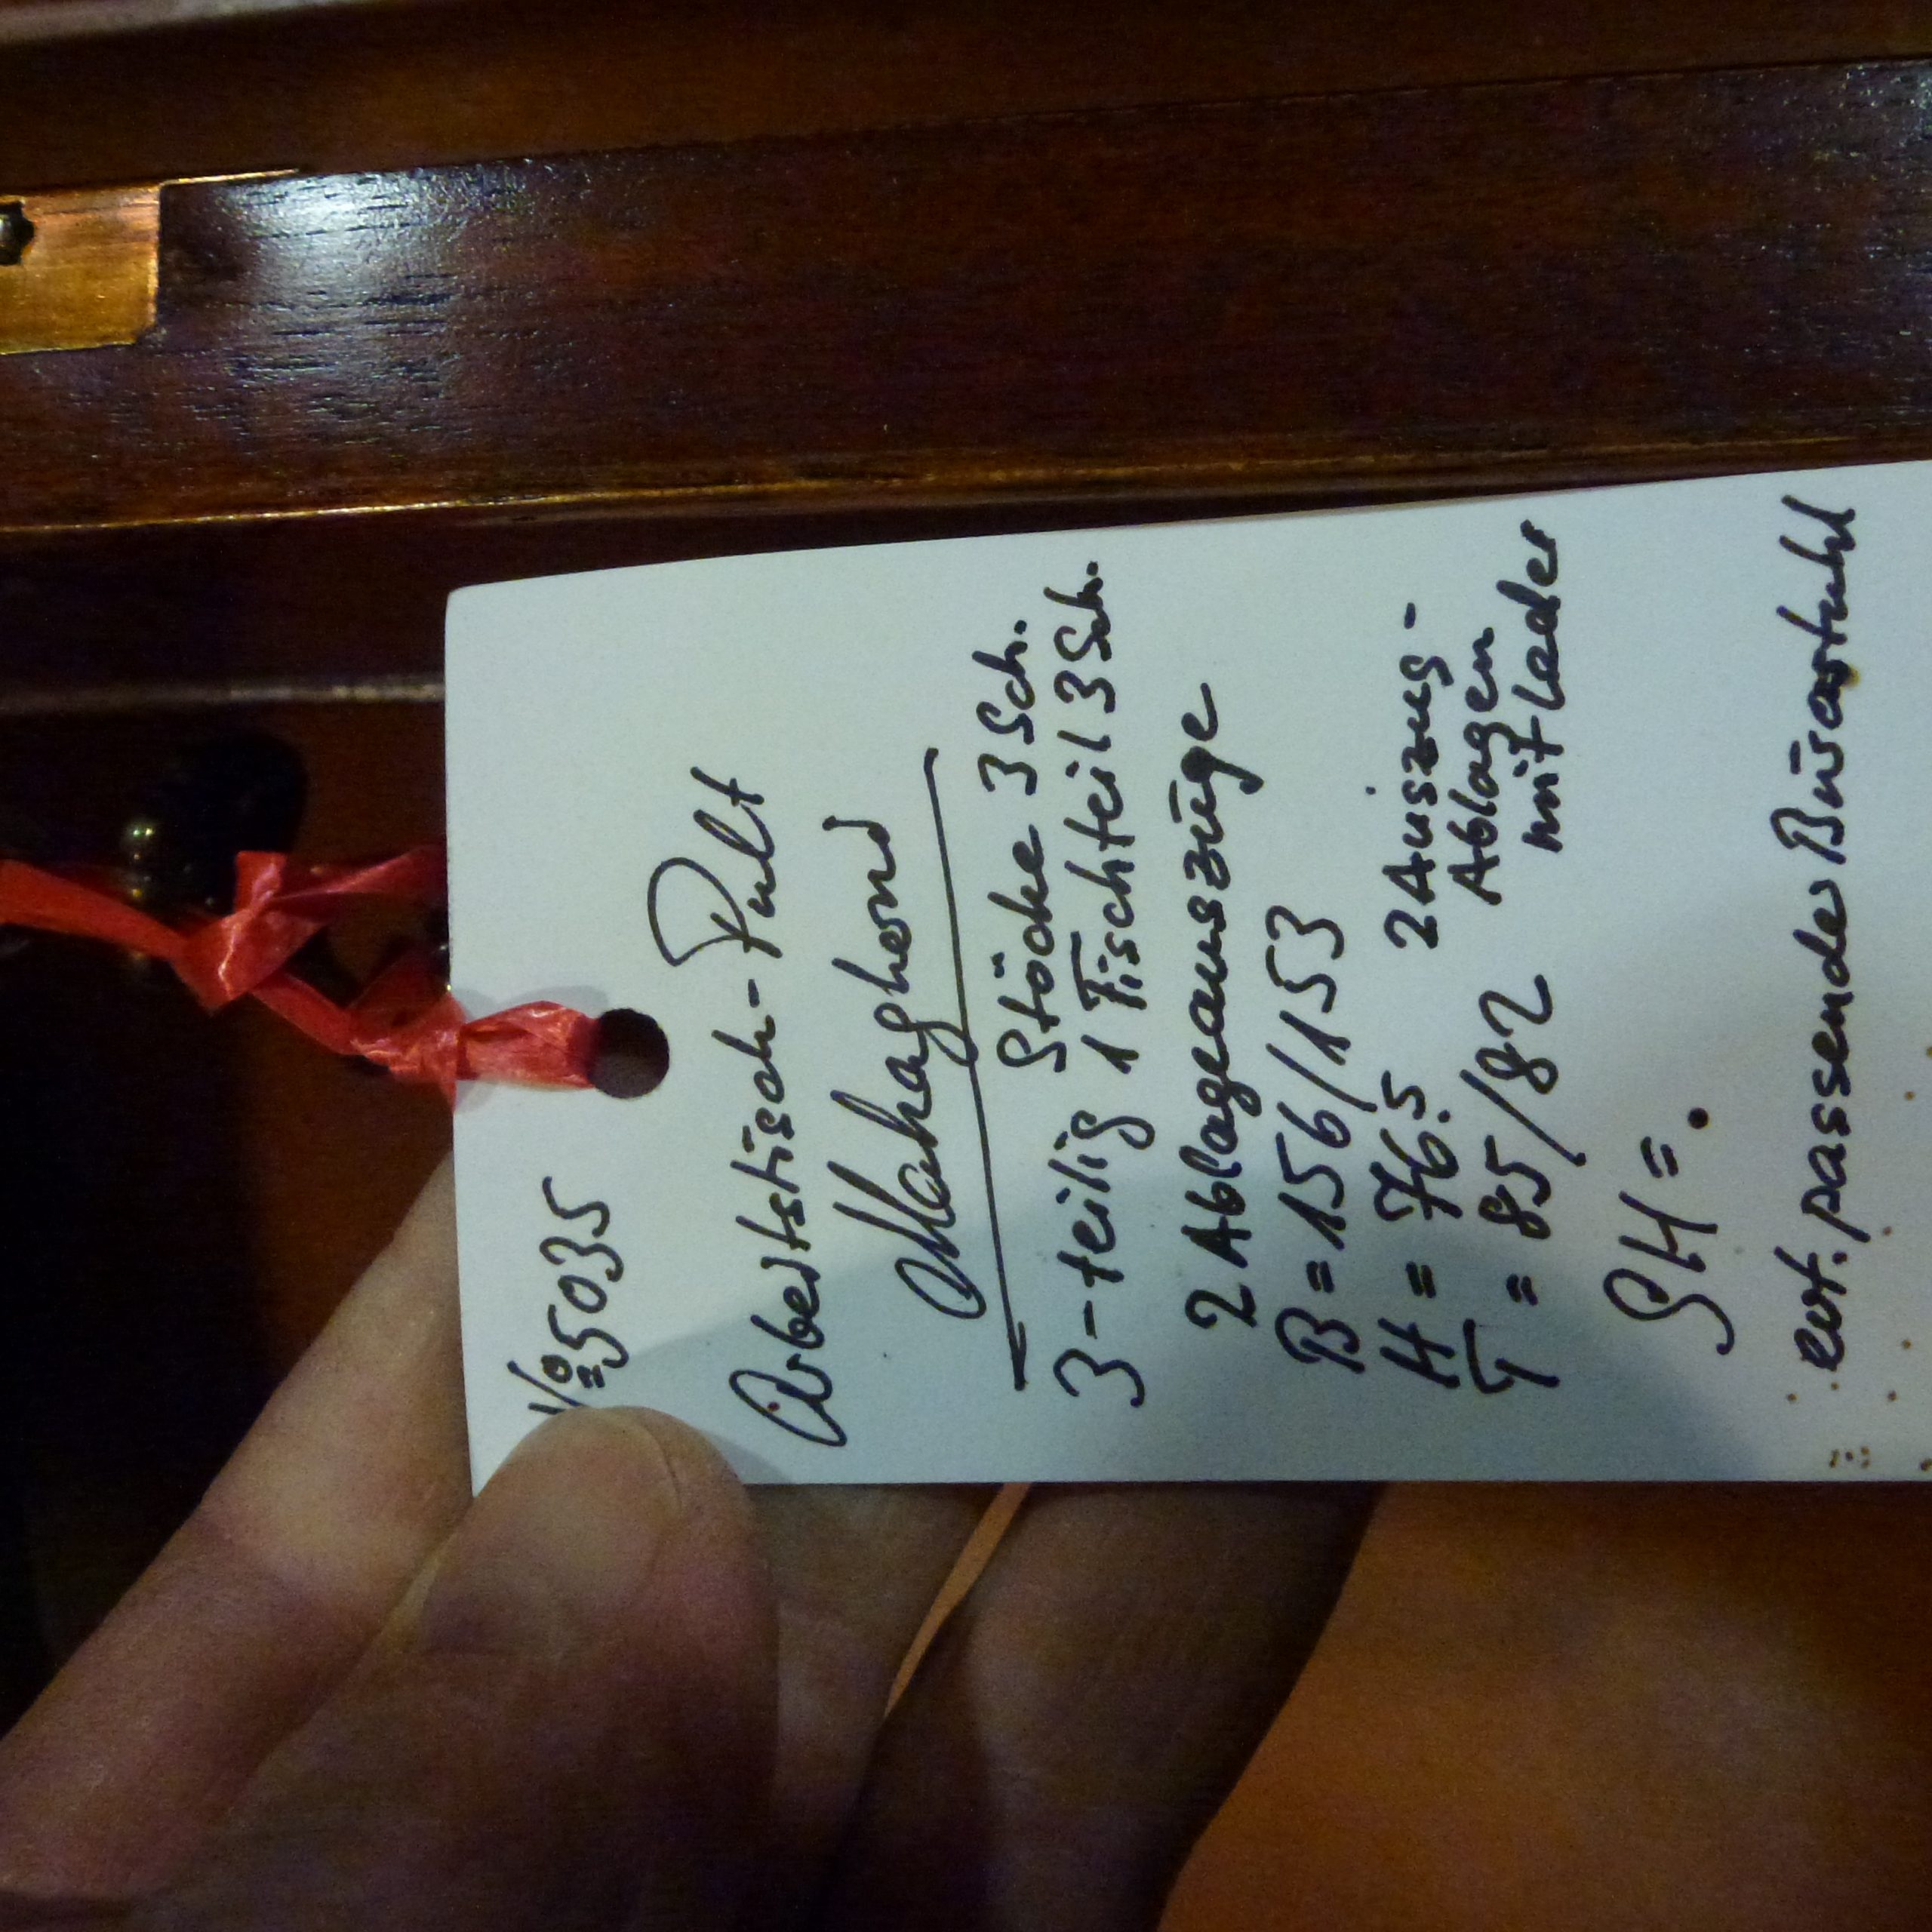 No 5035
Arbeitstisch-Pult
Mahaghoni
Stöcke 3 Sch.
3-teilig 1 Tischteil 3 Sch.
2 Ablageauszüge
B = 156/153
H = 76.5 2 Auszug-
Ablagen
T = 85/82 mit Leder
SH = .
evt. passender Bürostuhl